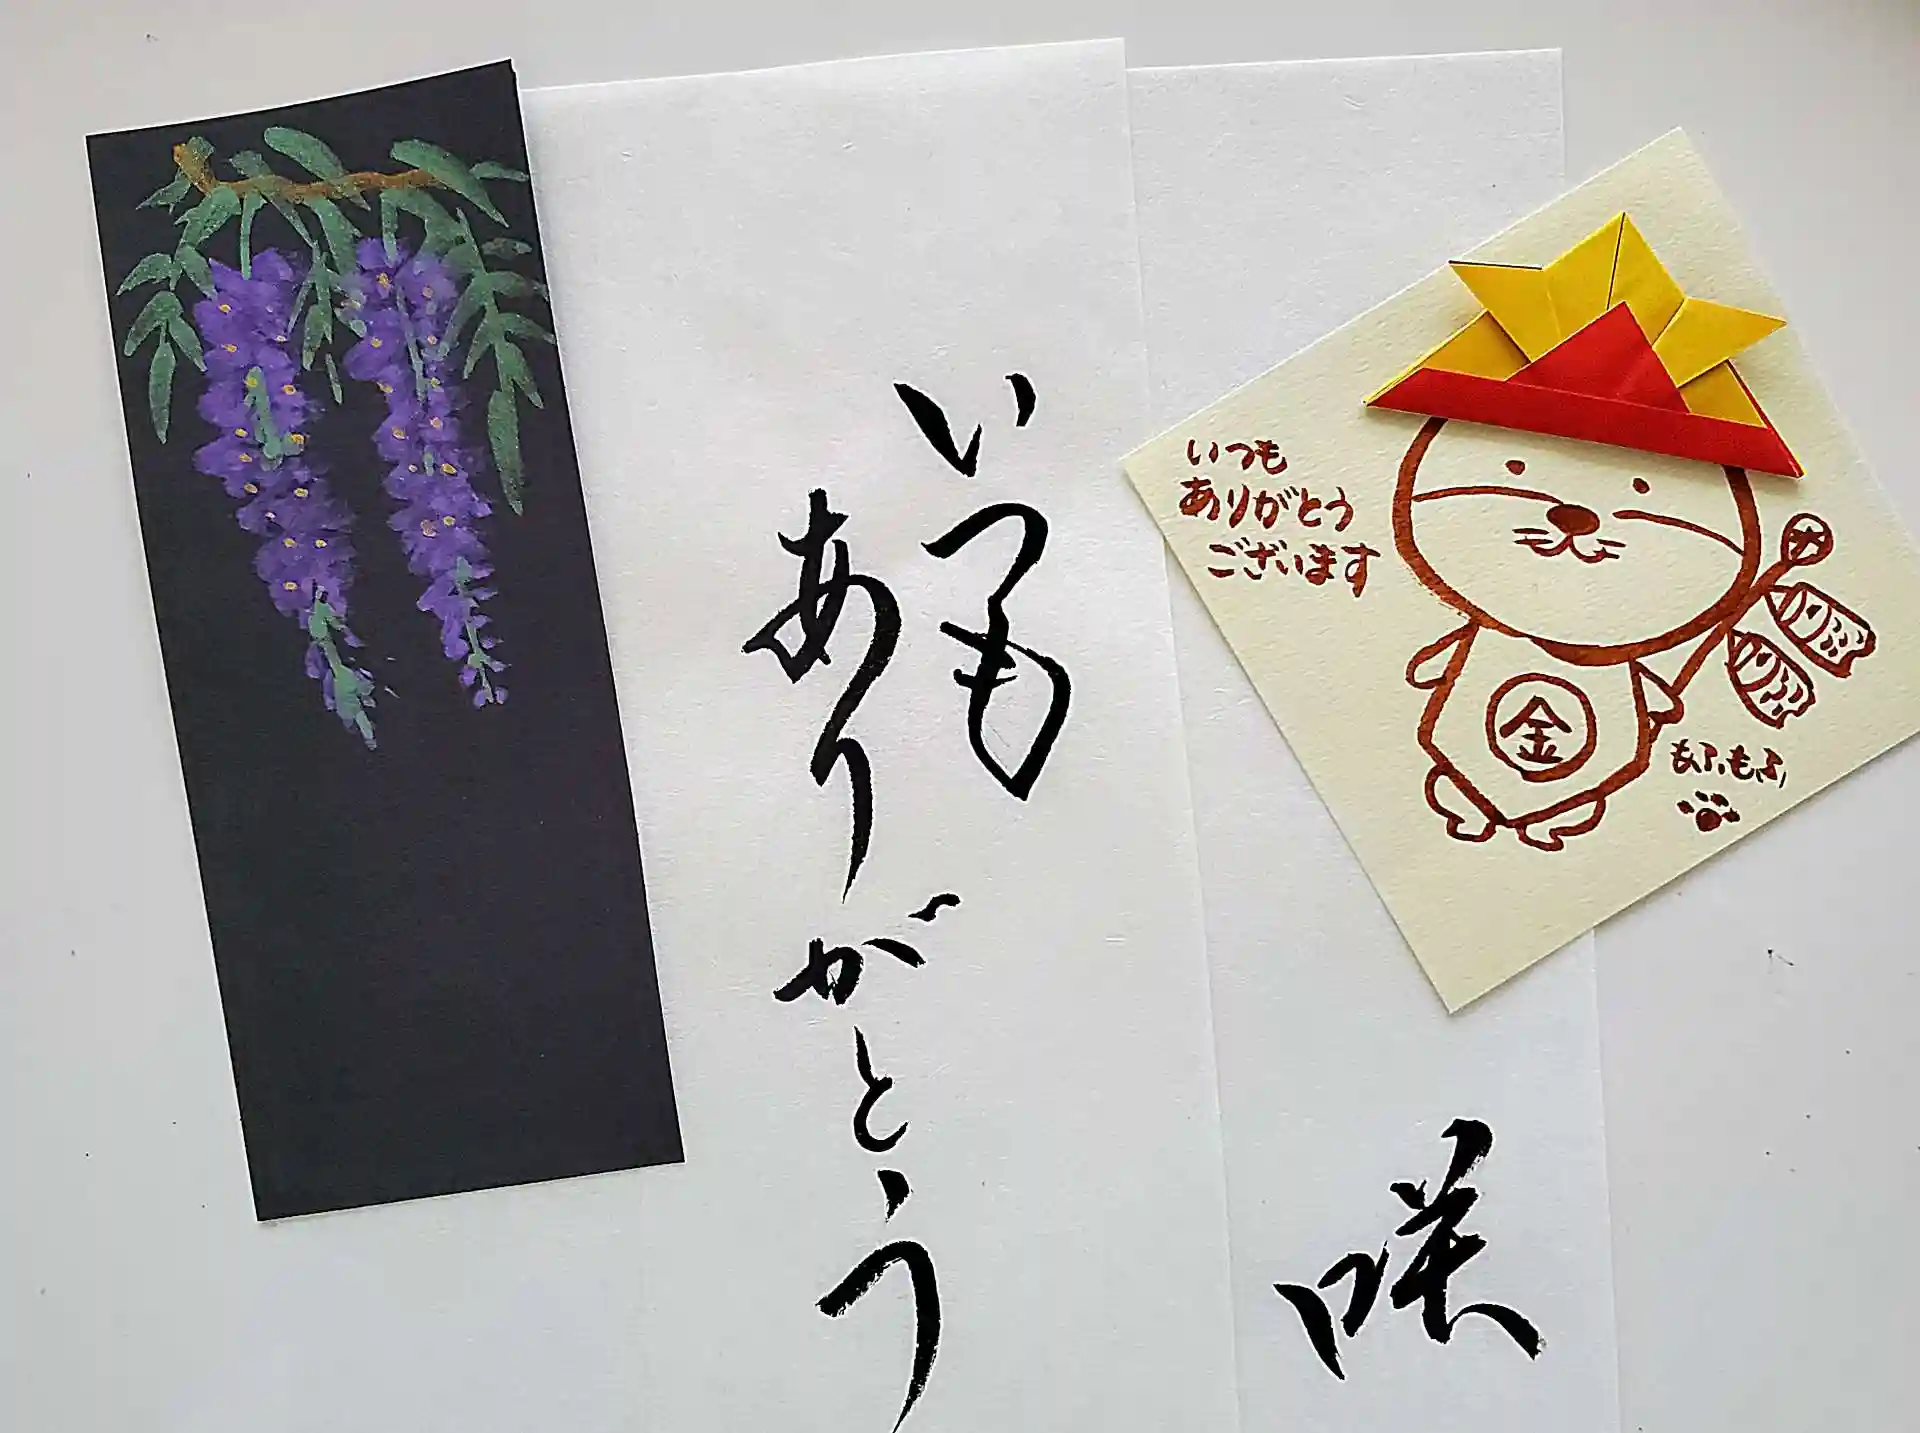 いつも
ありがとう
咲
いつも
ありがとう
ございます
金
もふもふ